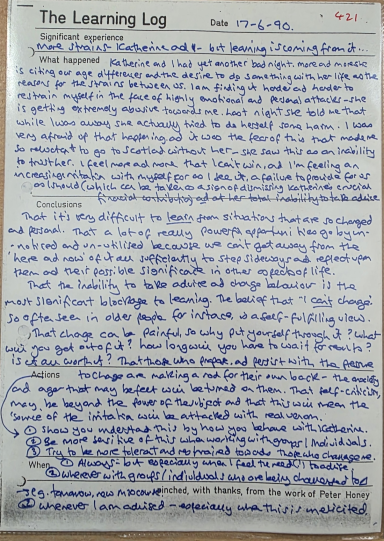 421
The Learning Log
Date 17-6-90.
Significant experience
more strains Katherine and I - but learning is coming from it...
What happened Katherine and I had yet another bad night. more and more she
is citing our age differences and the desire to do something with her life as the
reasons for the strains between us. I am finding it harder and harder to
restrain myself in the face of highly emotional and personal attacks - she
is getting extremely abusive towards me. Last night she told me that
while I was away she actually tried to do herself some harm. I was
very afraid of that happening and it was the fear of this that made me
so reluctant to go to Scotland without her - she saw this as an inability
to trust her. I feel more and more that I can't win, and I'm feeling an
increasing irritation with myself for as I see it, a failure to provide for us
as I should (which can be taken as a sign of dismissing Katherine's crucial
financial contribution) and at her total inability to take advice
Conclusions
That it's very difficult to learn from situations that are so charged
and personal. That a lot of really powerful opportunities go by un-
noticed and un-utilised because we can't get away from the
here and now of it all sufficiently to step sideways and reflect upon
them and their possible significance in other aspects of life.
That the inability to take advice and change behaviour is the
most significant blockage to learning. The belief that "I can't change"
so often seen in older people for instance, is a self-fulfilling view.
That change can be painful, so why put yourself through it? What
will you get out of it? how long will you have to wait for results?
is it all worth it? That those who prepare and persist with the pressure
Actions to change are making a rod for their own back - the anxiety
and anger that may be felt will be turned on them. That self-criticism,
may be beyond the power of the subject and that this will mean the
source of the irritation will be attacked with real venom.
① Show you understand this by how you behave with Katherine.
② Be more sensitive of this when working with groups / individuals.
③ Try to be more tolerant and prepared towards those who challenge me.
When ① Always - but especially when I feel the need to advise
② wherever with groups / individuals who are being challenged to
eg. tomorrow, new microcourse
inched, with thanks, from the work of Peter Honey
③ whenever I am advised - especially when this is unsolicited